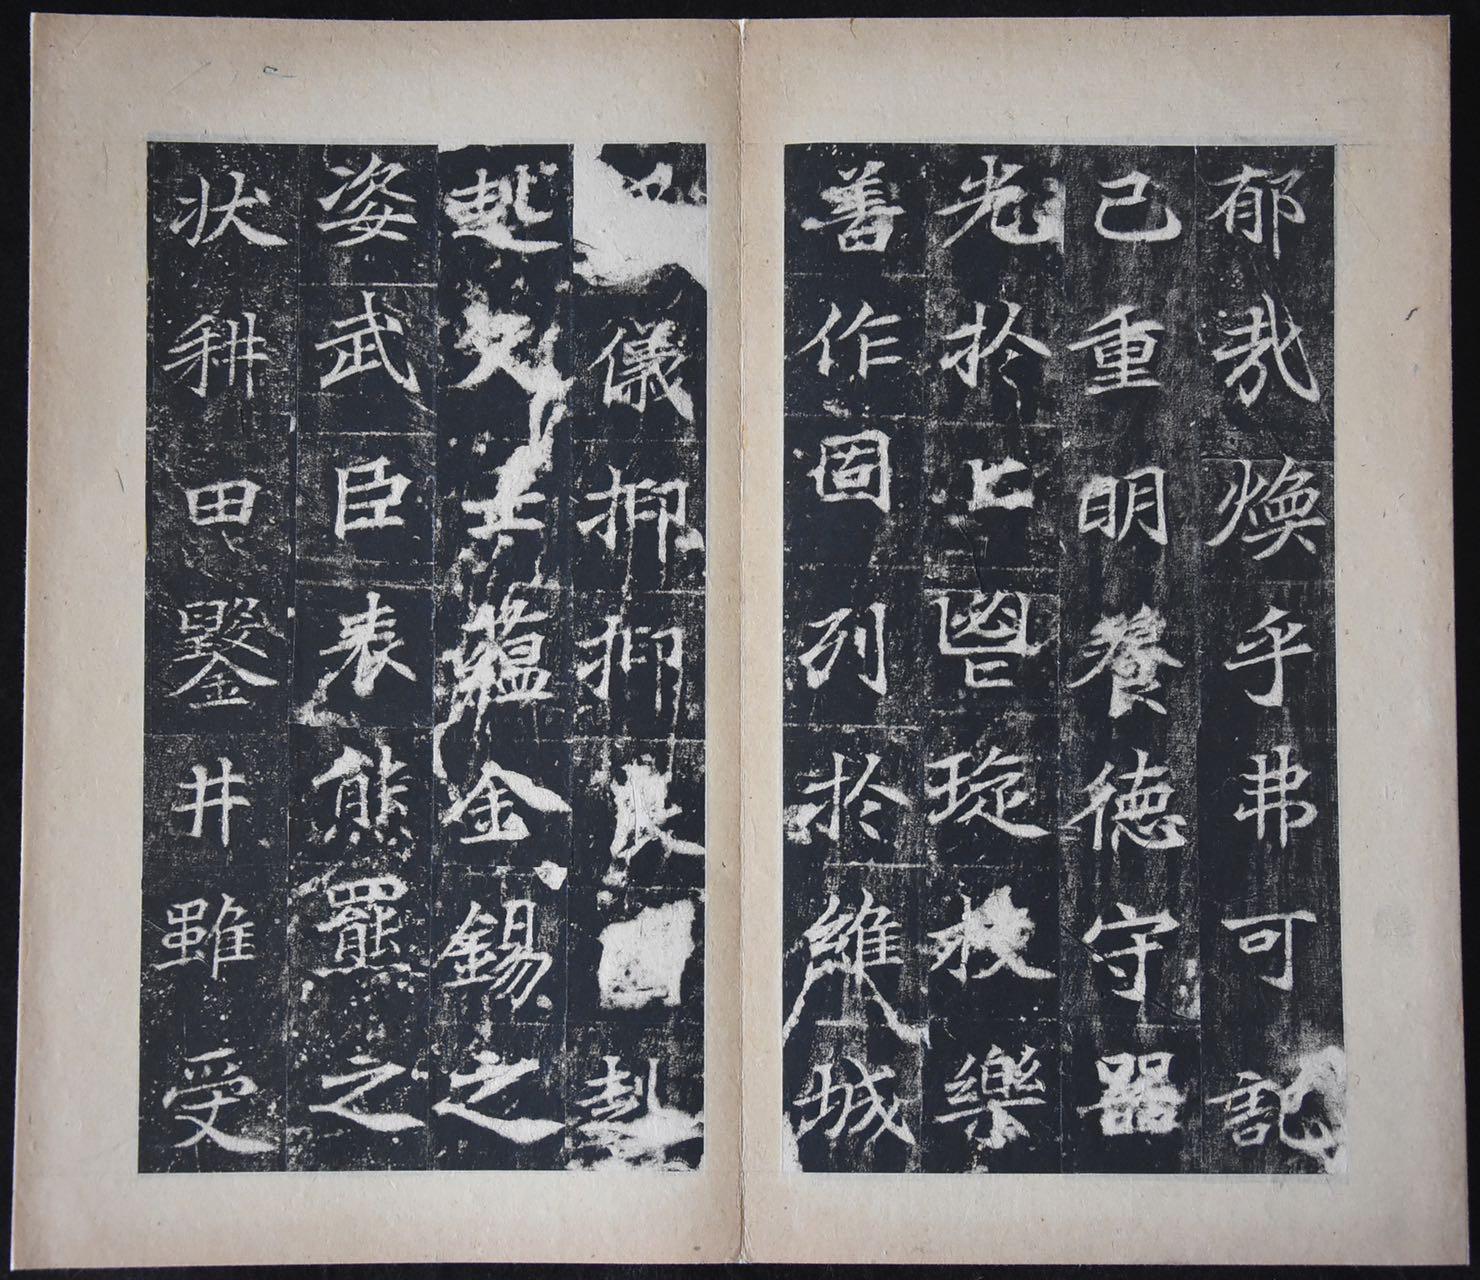 郁哉煥乎弗可記
已重明養德守器
光於匕鬯琁枝樂
善作固列於維城
儀抑抑良赳
赳文士蘊金錫之
姿武臣表熊羆之
狀耕田鑿井雖受